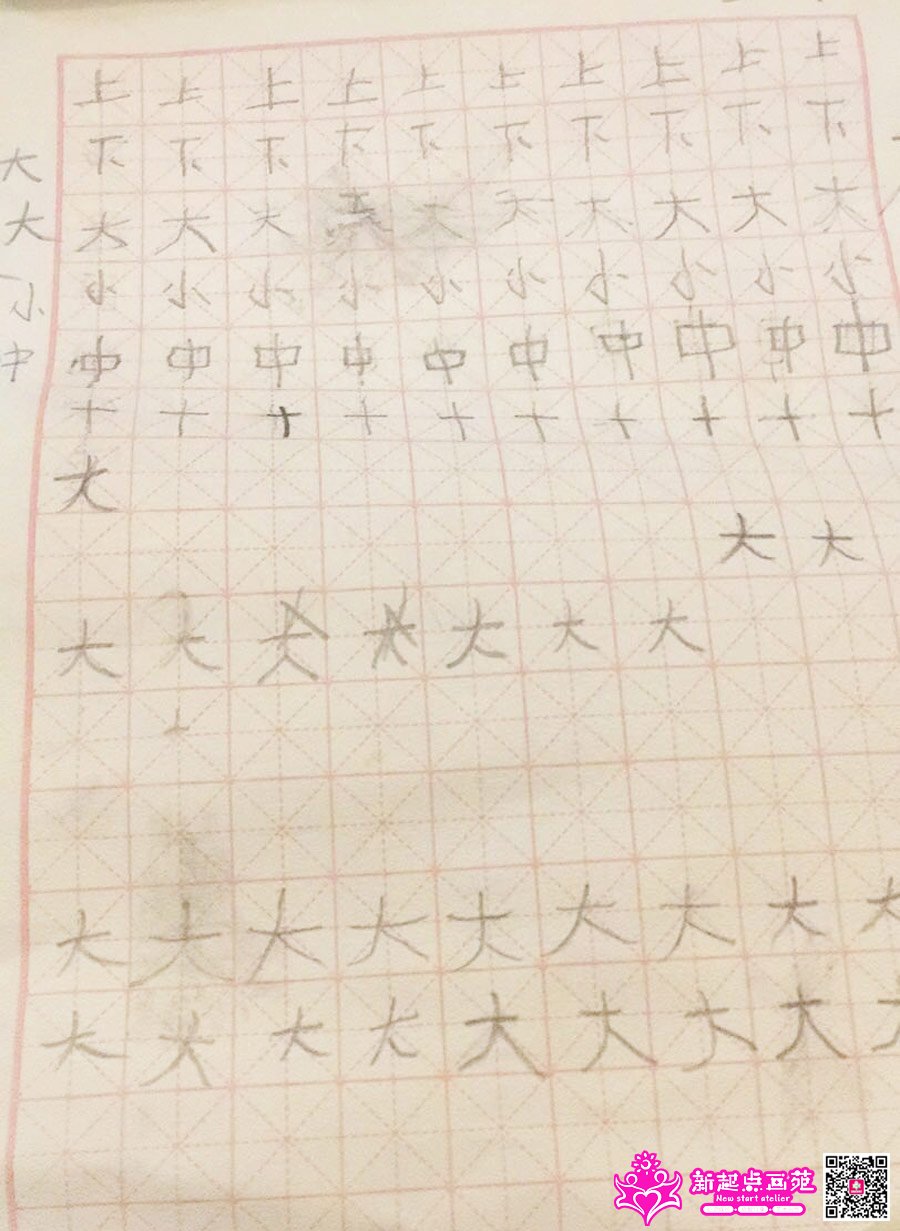 上上上上上上上上上上
下下下下下下下下下下
大大大大大大大大大
小小小小小小小小小小
中中中中中中中中中中
十十十十十十十十十十
大
大大
大大大大大大
大大大大大大大大大
大大大大大大大大
大
大
小
中
新起点画苑
New start atelier